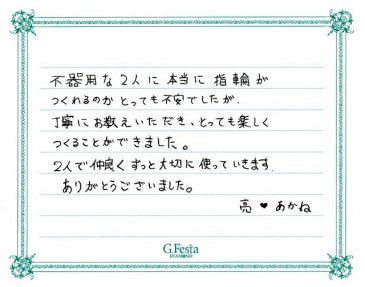 不器用な2人に本当に指輪が
つくれるのかとっても不安でしたが、
丁寧にお教えいただき、とっても楽しく
つくることができました。
2人で仲良くずっと大切に使っていきます。
ありがとうございました。
亮 ♥ あかね
G.Festa
DIAMOND